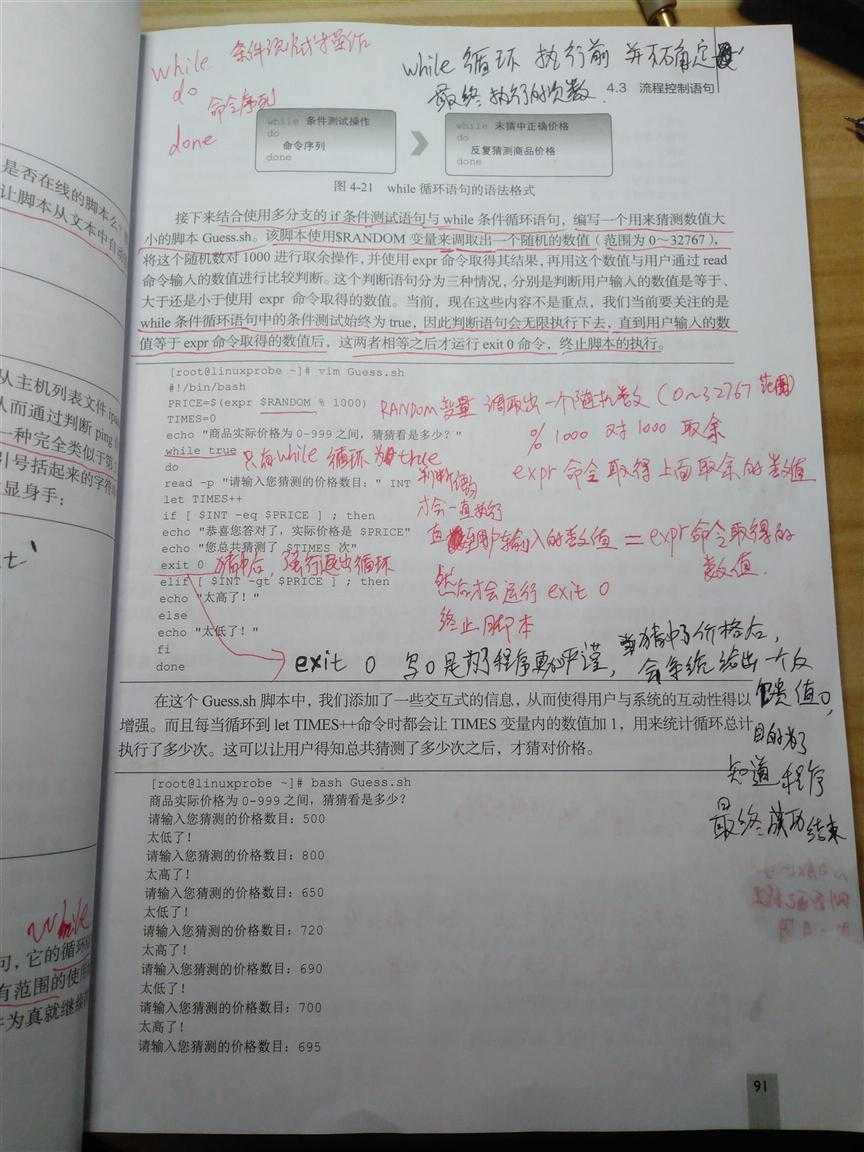 while 条件测试操作
do
命令序列
done
while 循环 执行前 并不确定
最终执行的次数.
4.3 流程控制语句
while 条件测试操作
do
命令序列
done
while 未猜中正确价格
do
反复猜测商品价格
done
图 4-21 while 循环语句的语法格式
接下来结合使用多分支的 if 条件测试语句与 while 条件循环语句，编写一个用来猜测数值大
小的脚本 Guess.sh。该脚本使用$RANDOM 变量来调取出一个随机的数值（范围为 0～32767），
将这个随机数对 1000 进行取余操作，并使用 expr 命令取得其结果，再用这个数值与用户通过 read
命令输入的数值进行比较判断。这个判断语句分为三种情况，分别是判断用户输入的数值是等于、
大于还是小于使用 expr 命令取得的数值。当前，现在这些内容不是重点，我们当前要关注的是
while 条件循环语句中的条件测试始终为 true，因此判断语句会无限执行下去，直到用户输入的数
值等于 expr 命令取得的数值后，这两者相等之后才运行 exit 0 命令，终止脚本的执行。
[root@linuxprobe ~]# vim Guess.sh
#!/bin/bash
PRICE=$(expr $RANDOM % 1000)
TIMES=0
echo "商品实际价格为 0-999 之间，猜猜看是多少？"
while true
do
read -p "请输入您猜测的价格数目：" INT
let TIMES++
if [ $INT -eq $PRICE ] ; then
echo "恭喜您答对了，实际价格是 $PRICE"
echo "您总共猜测了 $TIMES 次"
exit 0
elif [ $INT -gt $PRICE ] ; then
echo "太高了！"
else
echo "太低了！"
fi
done
RANDOM 变量 调取出一个随机数 (0~32767 范围)
% 1000 对 1000 取余
expr 命令 取得上面取余的数值
只有while 循环 为 true
判断
才会一直执行
直到用户输入的数值 = expr 命令取得的
数值.
然后才会运行 exit 0
终止脚本
猜中后, 强行退出循环
exit 0 写0是为了程序更加严谨, 当猜中了价格后,
会给系统给出一个反
馈值0,
目的为了
知道程序
最终成功结束
在这个 Guess.sh 脚本中，我们添加了一些交互式的信息，从而使得用户与系统的互动性得以
增强。而且每当循环到 let TIMES++命令时都会让 TIMES 变量内的数值加 1，用来统计循环总计
执行了多少次。这可以让用户得知总共猜测了多少次之后，才猜对价格。
[root@linuxprobe ~]# bash Guess.sh
商品实际价格为 0-999 之间，猜猜看是多少？
请输入您猜测的价格数目：500
太低了！
请输入您猜测的价格数目：800
太高了！
请输入您猜测的价格数目：650
太低了！
请输入您猜测的价格数目：720
太高了！
请输入您猜测的价格数目：690
太低了！
请输入您猜测的价格数目：700
太高了！
请输入您猜测的价格数目：695
91
是否在线的脚本么？
让脚本从文本中自动
从主机列表文件
从而通过判断 ping
一种完全类似于第
引号括起来的字符
显身手：
while
可，它的循环
有范围的使用
件为真就继续